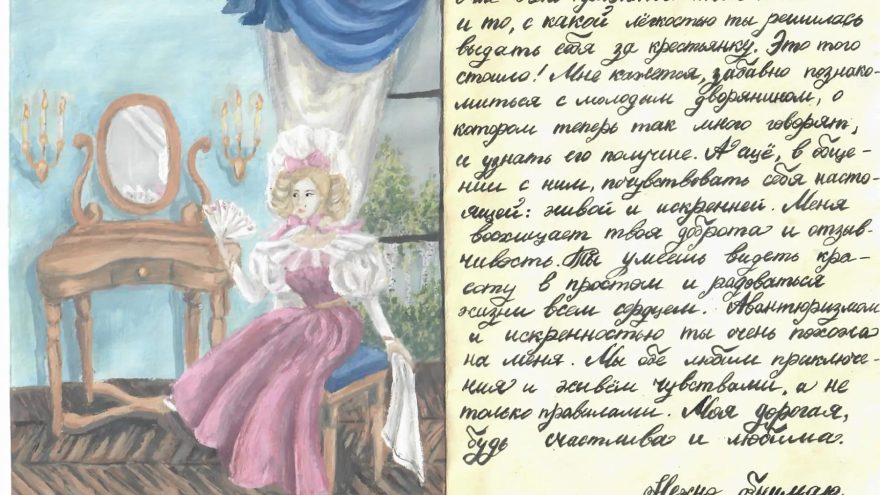 и то, с какой лёгкостью ты решилась
выдать себя за крестьянку. Это того
стоило! Мне кажется, забавно познако-
миться с молодым дворянином, о
котором теперь так много говорят,
и узнать его получше. А ещё, в обще-
нии с ним, почувствовать себя насто-
ящей: живой и искренней. Меня
восхищает твоя доброта и отзыв-
чивость. Ты умеешь видеть кра-
соту в простом и радоваться
жизни всем сердцем. Авантюризмом
и искренностью ты очень похожа
на меня. Мы обе любим приключе-
ния и живём чувствами, а не
только правилами. Моя дорогая,
будь счастлива и любима.
Нежно обнимаю,